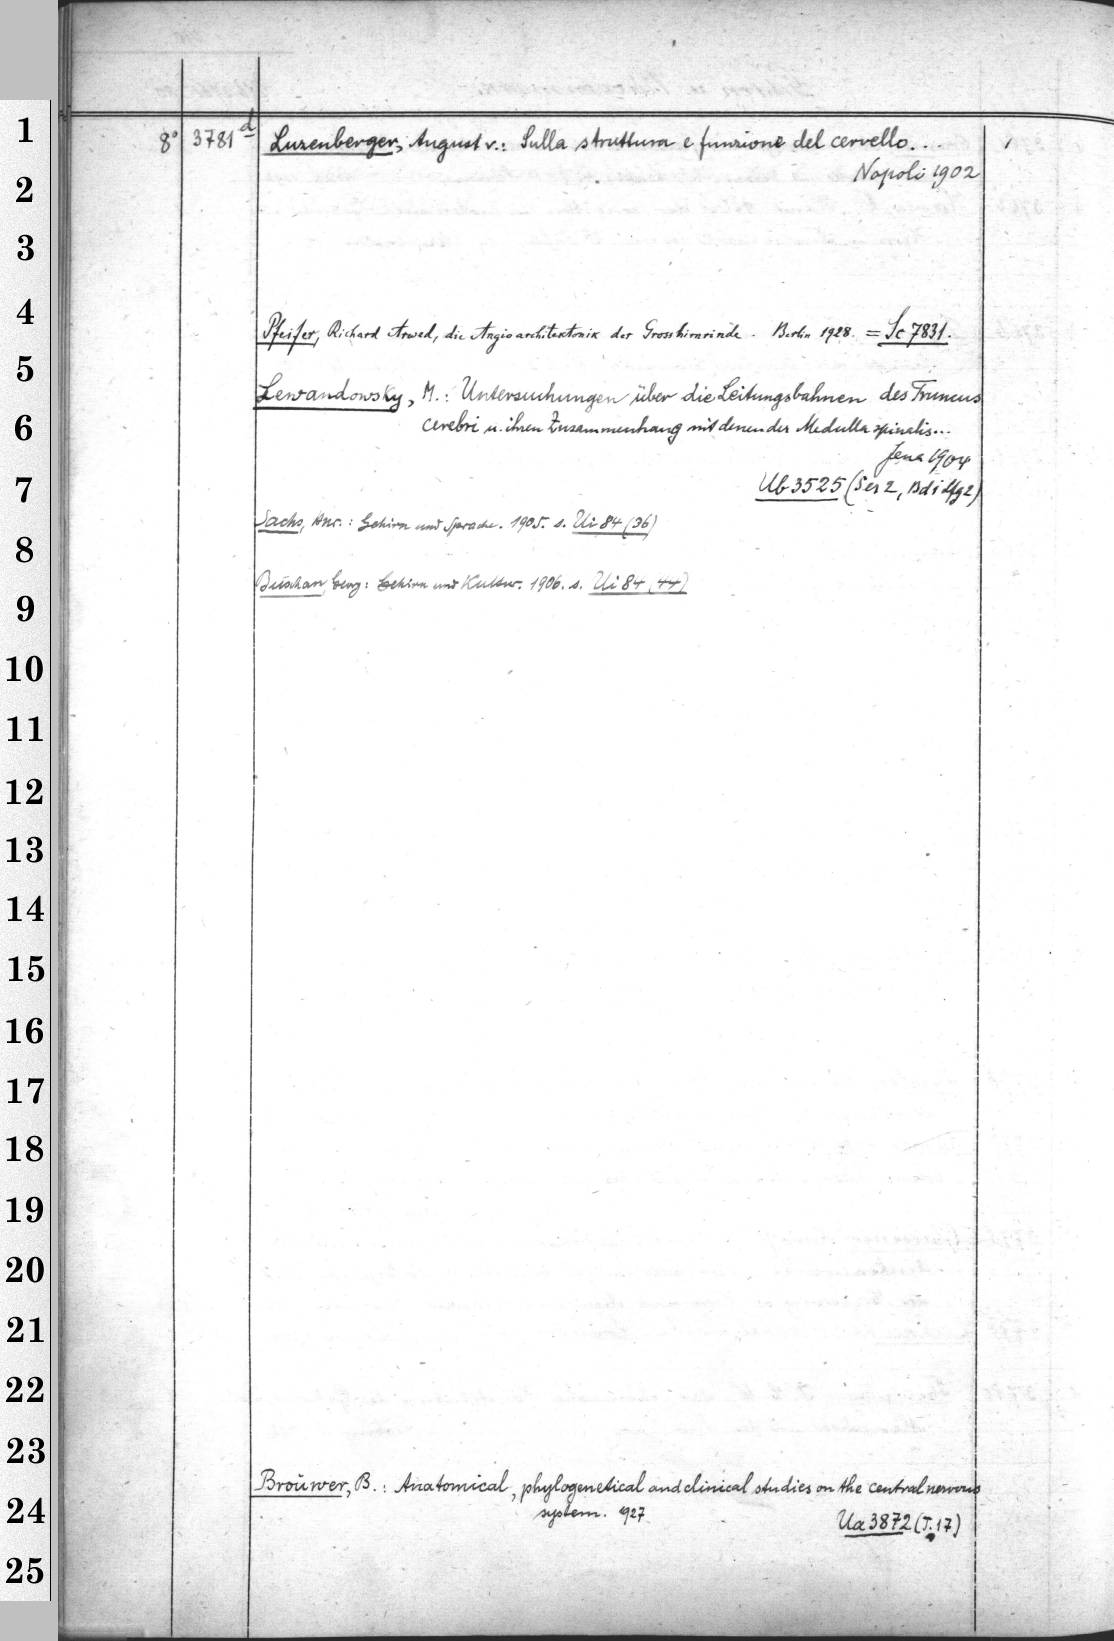 1
8° 3781 d Luzenberger, August v.: Sulla struttura e funzione del cervello...
2
Napoli 1902
3
4
Pfeifer, Richard Arwed, die Angioarchitektonik der Grosshirnrinde. Berlin 1928. = Sc 7831.
5
Lewandowsky, M.: Untersuchungen über die Leitungsbahnen des Truncus
6
cerebri u. ihren Zusammenhang mit denen der Medulla spinalis...
Jena 1904
7
Ub 3525 (Ser 2, Bd 1 Lfg 2)
Sachs, : Gehirn und Sprache. 1905. s. Ui 84 (36)
8
Buschan, Georg: Gehirn und Kultur. 1906. s. Ui 84 (44)
9
10
11
12
13
14
15
16
17
18
19
20
21
22
23
Brouwer, B.: Anatomical, phylogenetical and clinical studies on the central nervous
24
system. 1927
Ua 3872 (T. 17)
25